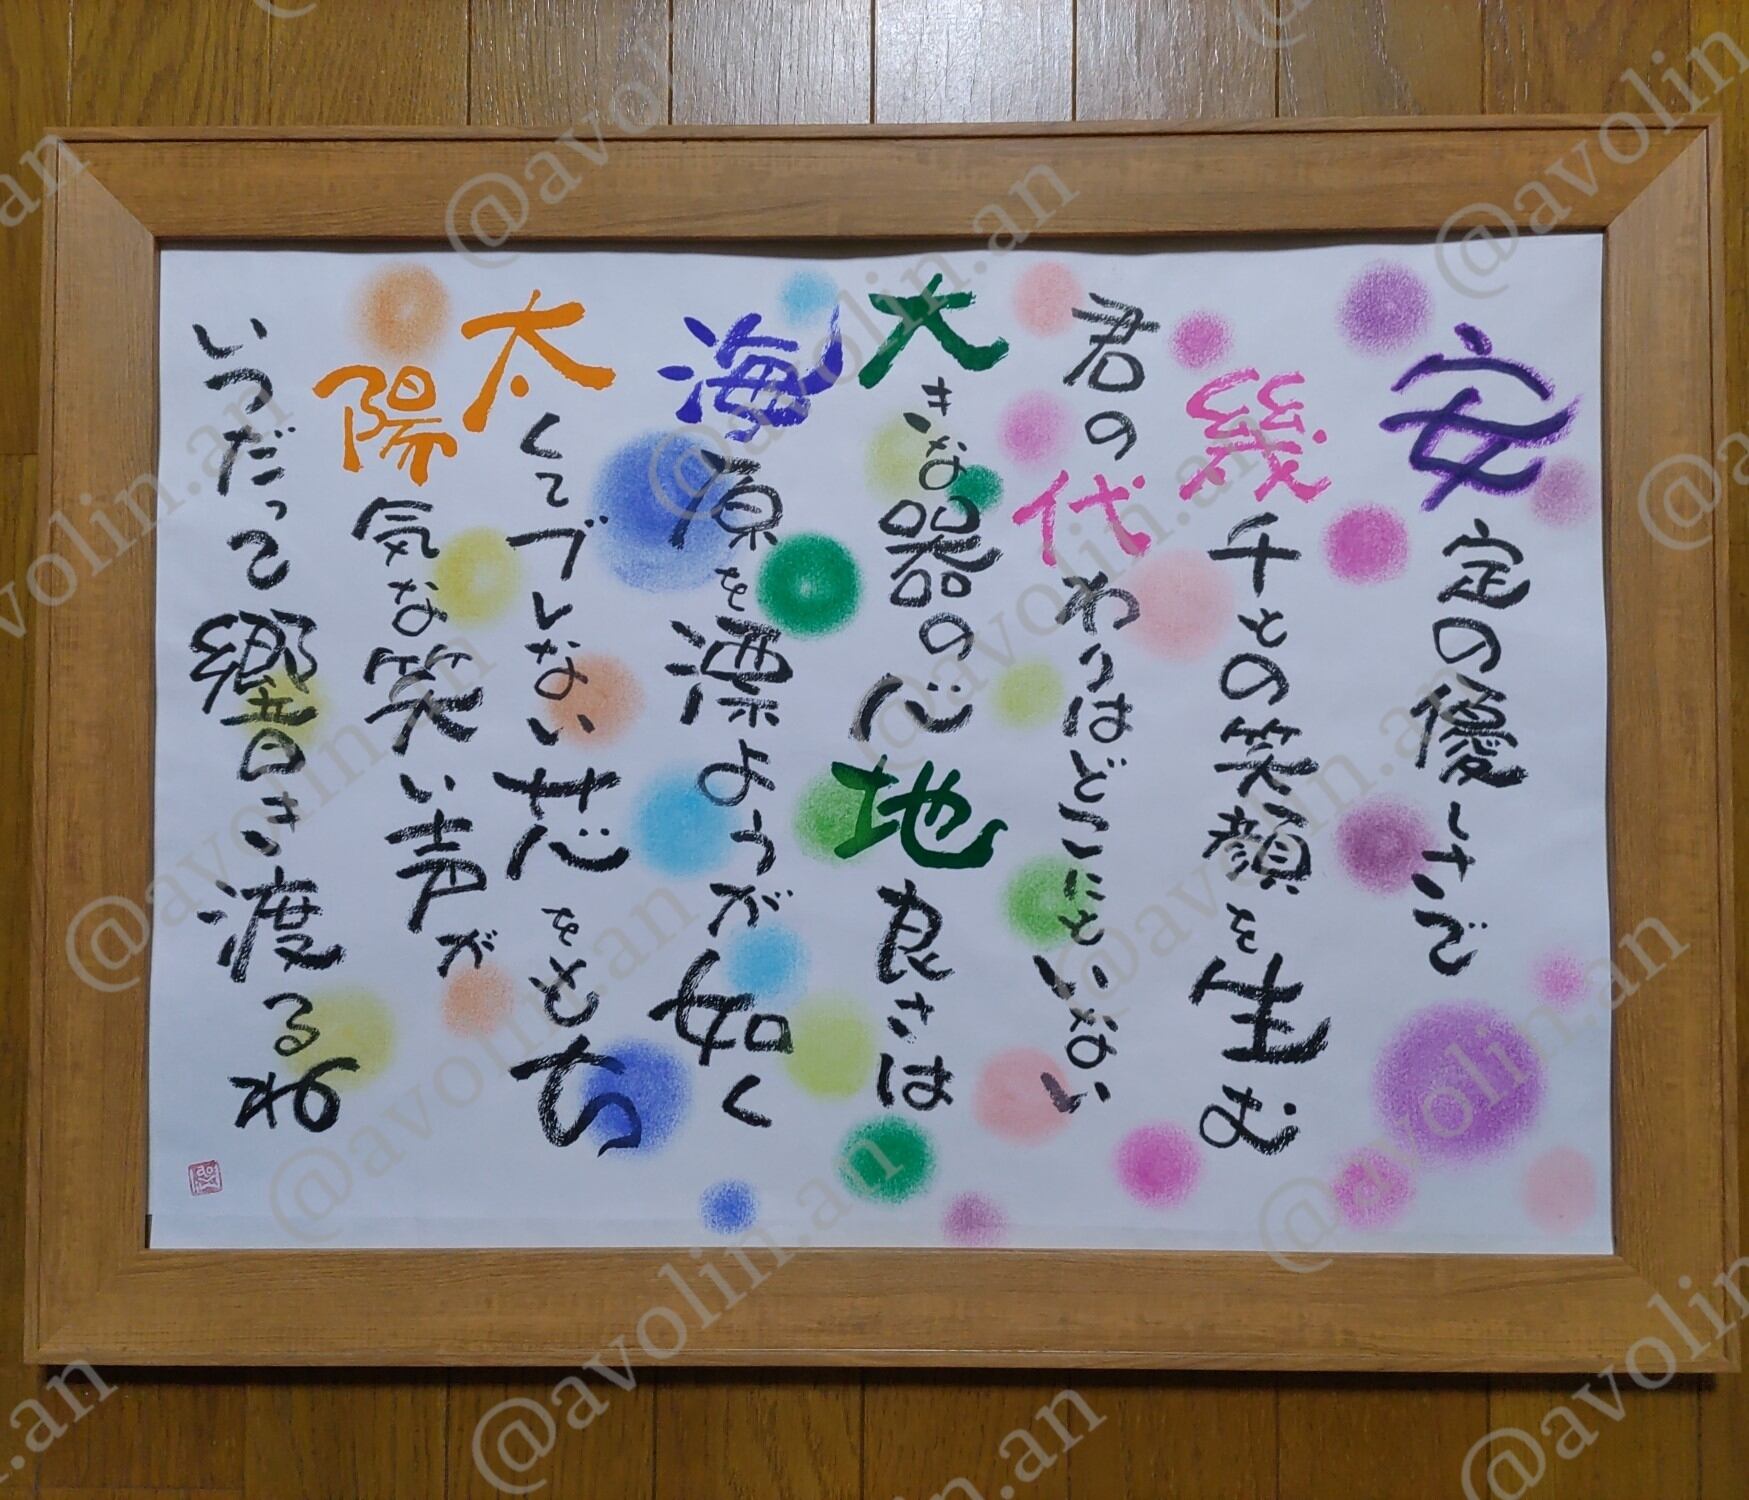 安定の優しさで
幾千もの笑顔を生む
君の代わりはどこにもいない
大きな器の心地良さは
海原を漂ようが如く
太くてブレない芯をもち
陽気な笑い声が
いつだって響き渡るね
@avolin.an